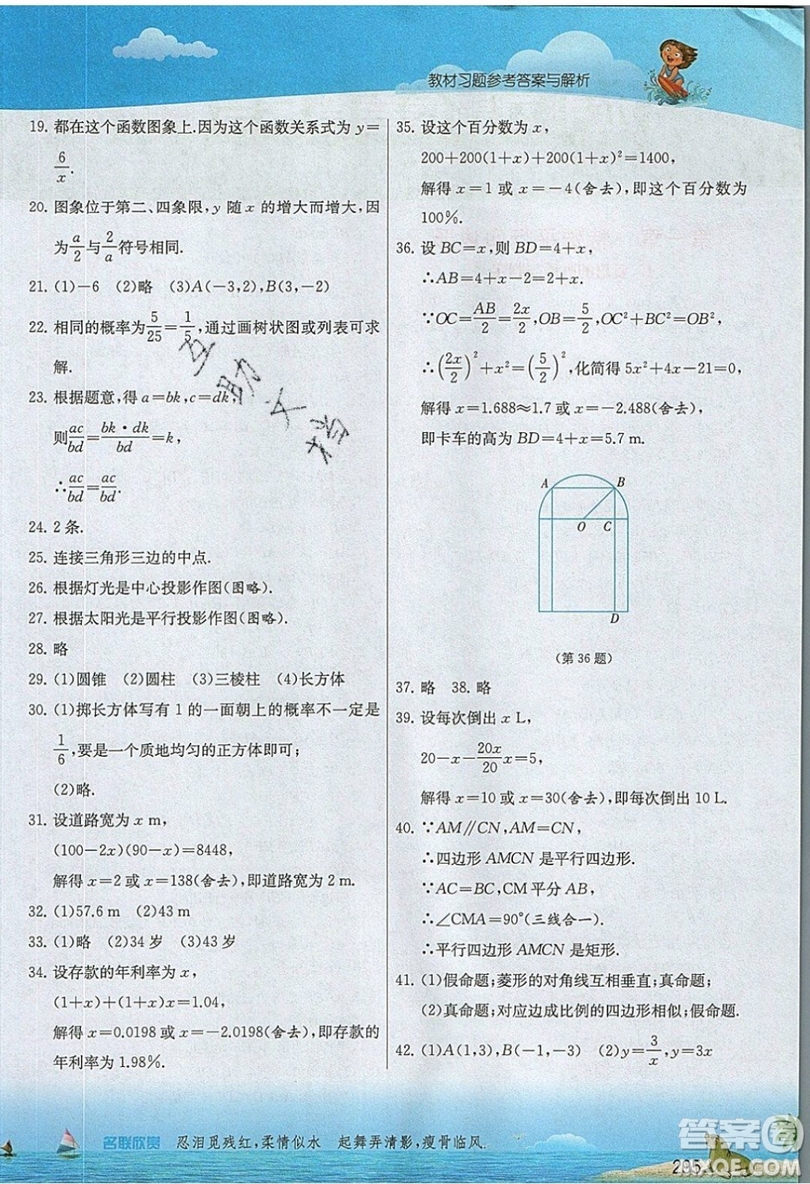 教材习题参考答案与解析
19. 都在这个函数图象上.因为这个函数关系式为 y=
6/x.
20. 图象位于第二、四象限,y 随 x 的增大而增大,因
为 a/2 与 2/a 符号相同.
21. (1)-6 (2)略 (3)A(-3,2),B(3,-2)
22. 相同的概率为 5/25=1/5,通过画树状图或列表可求
解.
23. 根据题意,得 a=bk,c=dk,
则 ac/bd=bk·dk/bd=k,
∴ac/bd=ac/bd.
24. 2 条.
25. 连接三角形三边的中点.
26. 根据灯光是中心投影作图(图略).
27. 根据太阳光是平行投影作图(图略).
28. 略
29. (1)圆锥 (2)圆柱 (3)三棱柱 (4)长方体
30. (1)掷长方体写有 1 的一面朝上的概率不一定是
1/6,要是一个质地均匀的正方体即可;
(2)略.
31. 设道路宽为 x m,
(100-2x)(90-x)=8448,
解得 x=2 或 x=138(舍去),即道路宽为 2 m.
32. (1)57.6 m (2)43 m
33. (1)略 (2)34 岁 (3)42 岁
34. 设存款的年利率为 x,
(1+x)+(1+x)x=1.04,
解得 x=0.0198 或 x=-2.0198(舍去),即存款的
年利率为 1.98%.
35. 设这个百分数为 x,
200+200(1+x)+200(1+x)²=1400,
解得 x=1 或 x=-4(舍去),即这个百分数为
100%.
36. 设 BC=x,则 BD=4+x,
∴AB=4+x-2=2+x.
∵OC=AB/2=2x/2,OB=5/2,OC²+BC²=OB²,
∴(2x/2)²+x²=(5/2)²,化简得 5x²+4x-21=0,
解得 x=1.688≈1.7 或 x=-2.488(舍去),
即卡车的高为 BD=4+x=5.7 m.
A B
O C
D
(第 36 题)
37. 略 38. 略
39. 设每次倒出 x L,
20-x-20x/20 x=5,
解得 x=10 或 x=30(舍去),即每次倒出 10 L.
40. ∵AM∥CN,AM=CN,
∴四边形 AMCN 是平行四边形.
∵AC=BC,CM 平分 AB,
∴∠CMA=90°(三线合一),
∴平行四边形 AMCN 是矩形.
41. (1)假命题;菱形的对角线互相垂直;真命题;
(2)真命题;对应边成比例的四边形相似;假命题.
42. (1)A(1,3),B(-1,-3) (2)y=3/x,y=3x
互助文档
名联欣赏 忍泪觅残红,柔情似水 起舞弄清影,瘦骨临风
295
答案